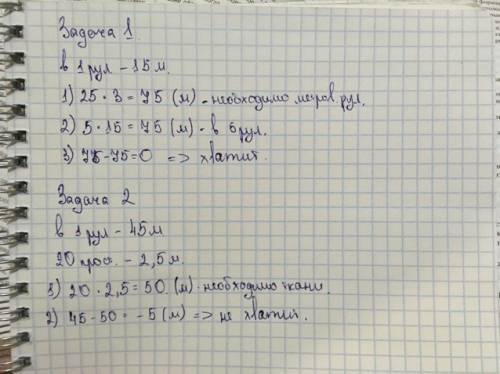 Задача 1.
в 1 рул - 15 м.
1) 25 · 3 = 75 (м) - необходимо метров. рул.
2) 5 · 15 = 75 (м) - в 5 рул.
3) 75 - 75 = 0 => хватит.
Задача 2
в 1 рул - 45 м
20 прос. - 2,5 м.
1) 20 · 2,5 = 50 (м) - необходимо ткани.
2) 45 - 50 = - 5 (м) => не хватит.